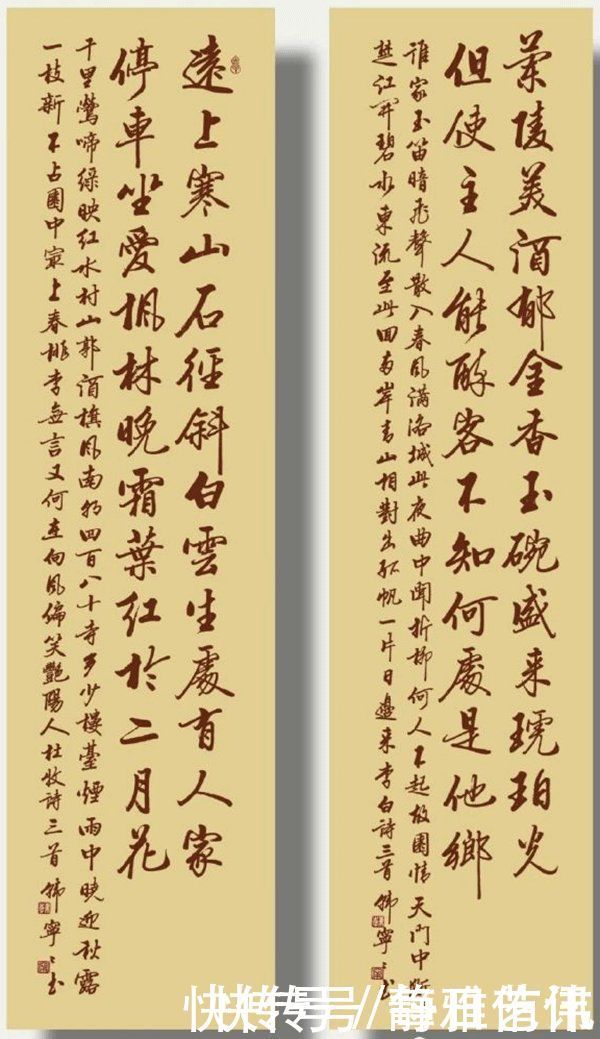 蘭陵美酒郁金香玉碗盛来琥珀光
但使主人能醉客不知何處是他鄉
誰家玉笛暗飛聲散入春風滿洛城此夜曲中聞折柳何人不起故園情天門中斷
楚江開碧水東流至此回两岸青山相對出孤帆一片日邊来李白詩三首韓寧
遠上寒山石徑斜白雲生處有人家
停車坐愛楓林晚霜葉紅於二月花
千里鶯啼綠映紅水村山郭酒旗風南朝四百八十寺多少樓臺煙雨中曉迎秋露
一枝新不占園中最上春桃李無言又何在向風偏笑豔陽人杜牧詩三首韓寧